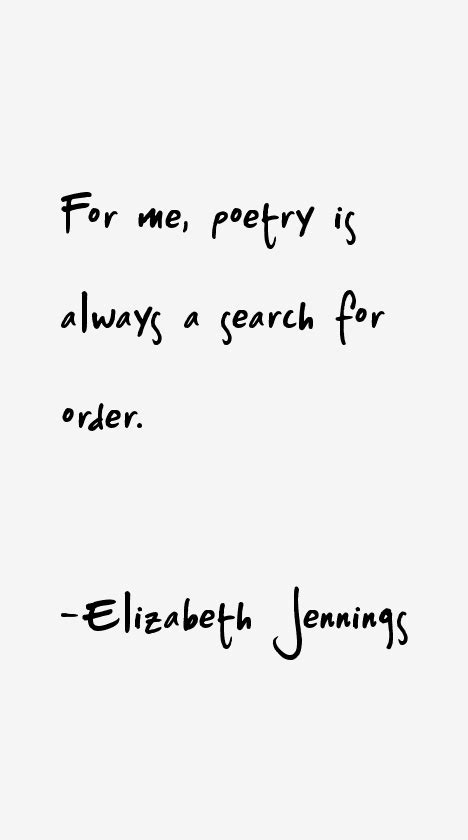 For me, poetry is
always a search for
order.
-Elizabeth Jennings